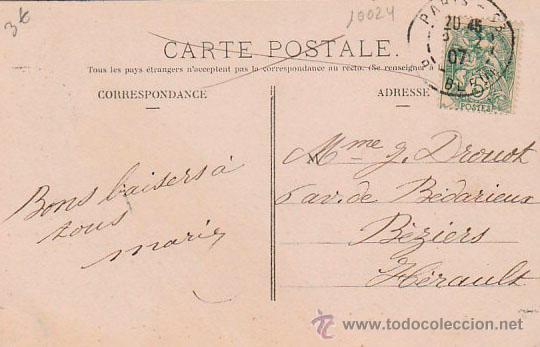 3k
10024
PARIS
20 45
07
CARTE POSTALE.
Tous les pays étrangers n'acceptent pas la correspondance au recto. (Se renseigner à
CORRESPONDANCE
ADRESSE
POSTES
Bons baisers à
tous
Marie
Mme G. Drouot
6 av. de Bédarieux
Béziers
Hérault
www.todocoleccion.net